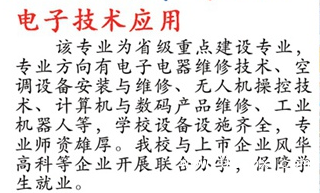 电子技术应用
该专业为省级重点建设专业，
专业方向有电子电器维修技术、空
调设备安装与维修、无人机操控技
术、计算机与数码产品维修、工业
机器人等，学校设备设施齐全，专
业师资雄厚。我校与上市企业风华
高科等企业开展联合办学，保障学
生就业。